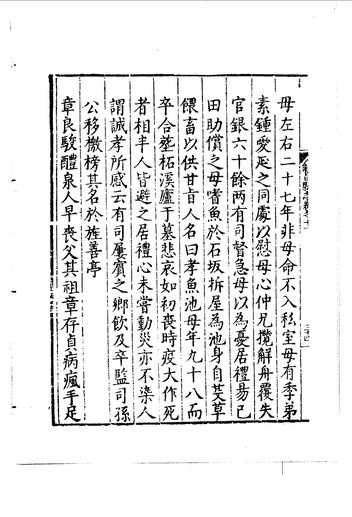 母左右二十七年非母命不入私室母有季弟
素鍾愛延之同處以慰母心仲兄攬解舟覆失
官銀六十餘兩有司督急母以為憂居禮昜己
田助償之母嗜魚於石坂拆屋為池身自芟草
餵畜以供甘㫖人名曰孝魚池母年九十八而
卒合塟柘溪廬于墓悲哀如初喪時疫大作死
者相半人皆避之居禮心未嘗動災亦不染人
謂誠孝所感云有司屢賔之鄉飲及卒監司孫
公移檄榜其名於旌善亭
章良駿醴泉人早喪父其祖章存貞病瘋手足